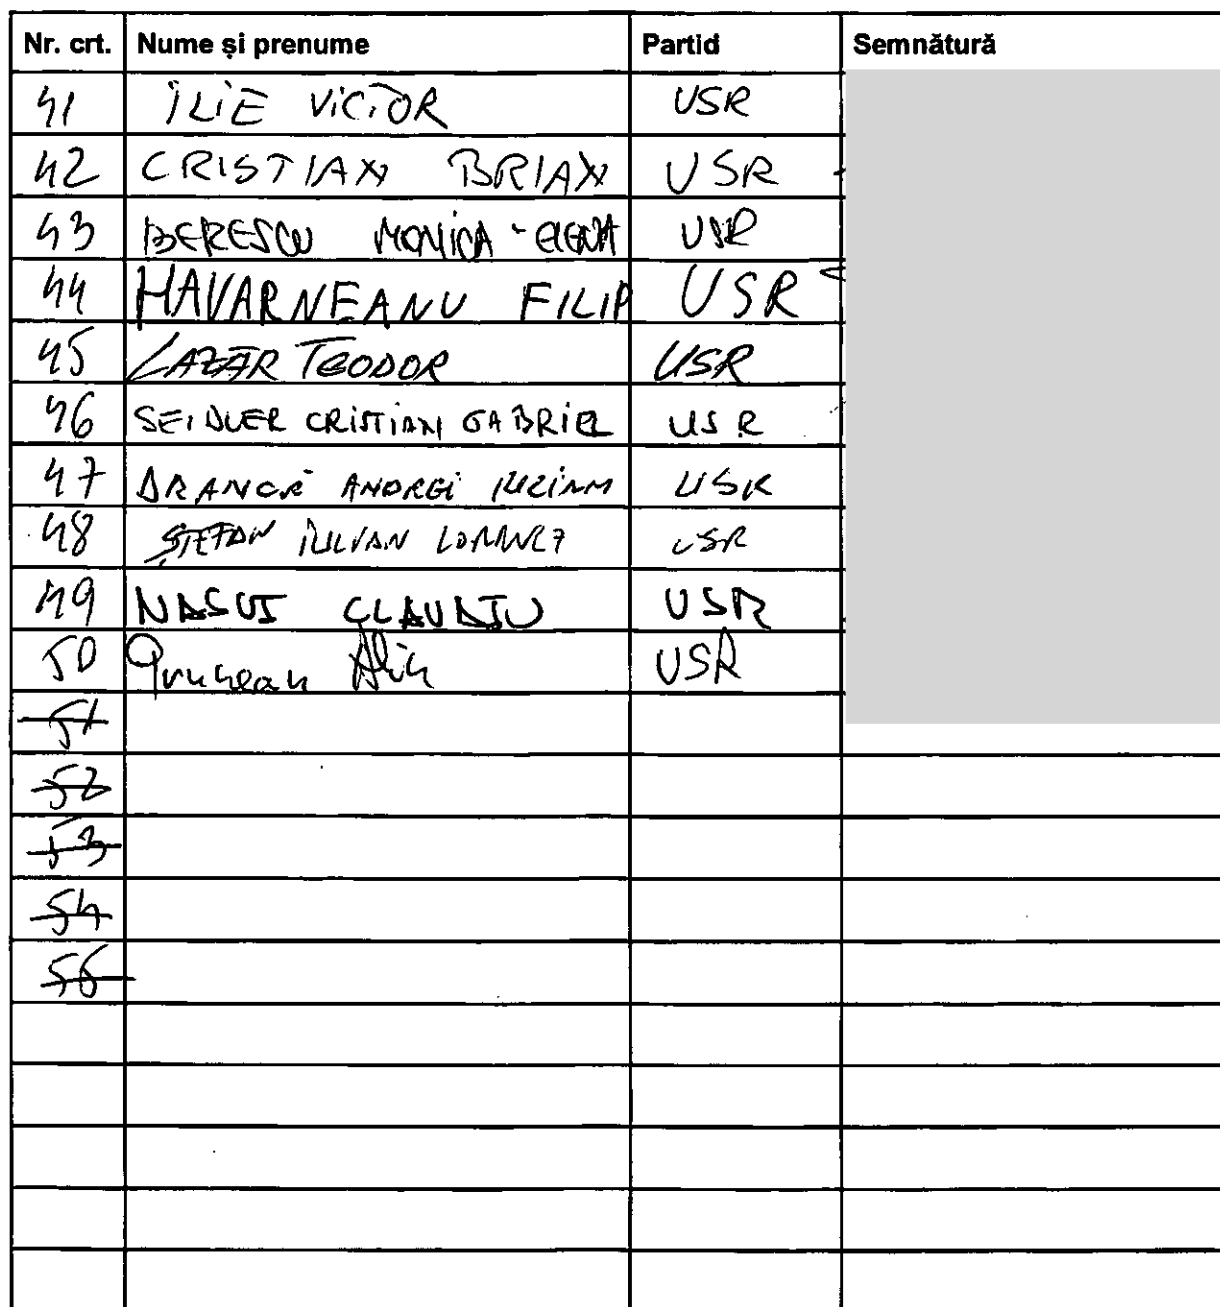 Nr. crt. Nume și prenume Partid Semnătură
41 ILIE VICTOR USR
42 CRISTIAN BRIAN USR
43 BERESCU MONICA-ELENA USR
44 HAVARNEANU FILIP USR
45 LAZĂR TEODOR USR
46 SEIDLER CRISTIAN GABRIEL USR
47 ANDREI IULIAN USR
48 ȘTEFAN IULIAN USR
49 NASUI CLAUDIU USR
50 Alin USR
51
52
53
54